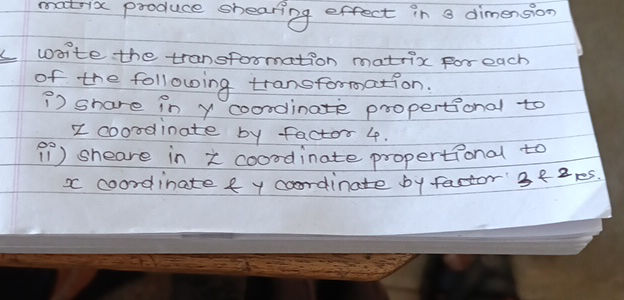 matrix produce shearing effect in 3 dimension
write the transformation matrix for each
of the following transformation.
i) share in y coordinate propertional to
z coordinate by factor 4.
ii) sheare in z coordinate propertional to
x coordinate & y coordinate by factor 3 & 2 res.